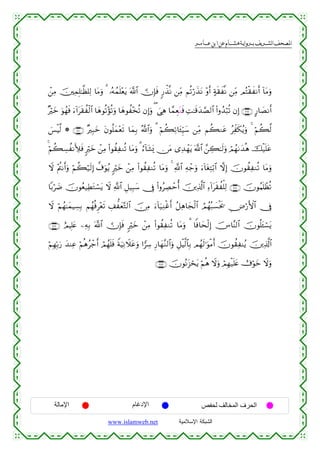 المصحف الشريف برواية هشام عن ابن عامر
وَمَآ أَنفَقْتُم مِّن نَّفَقَةٍ أَوْ نَذَرْتُم مِّن نَّذْرٍ فَإِنَّ ٱللَّهَ يَعْلَمُهُۥ ۗ وَمَا لِلظَّٰلِمِينَ مِنْ
أَنصَارٍ إِن تُبْدُوا۟ ٱلصَّدَقَٰتِ فَنَعِمَّا هِىَ ۖ وَإِن تُخْفُوهَا وَتُؤْتُوهَا ٱلْفُقَرَآءَ فَهُوَ خَيْرٌ
لَّكُمْ ۚ وَيُكَفِّرُ عَنكُم مِّن سَيِّـَٔاتِكُمْ ۗ وَٱللَّهُ بِمَا تَعْمَلُونَ خَبِيرٌ ۞ لَّيْسَ
عَلَيْكَ هُدَىٰهُمْ وَلَٰكِنَّ ٱللَّهَ يَهْدِى مَن يَشَآءُ ۗ وَمَا تُنفِقُوا۟ مِنْ خَيْرٍ فَلِأَنفُسِكُمْ ۚ
وَمَا تُنفِقُونَ إِلَّا ٱبْتِغَآءَ وَجْهِ ٱللَّهِ ۚ وَمَا تُنفِقُوا۟ مِنْ خَيْرٍ يُوَفَّ إِلَيْكُمْ وَأَنتُمْ لَا
تُظْلَمُونَ لِلْفُقَرَآءِ ٱلَّذِينَ أُحْصِرُوا۟ فِى سَبِيلِ ٱللَّهِ لَا يَسْتَطِيعُونَ ضَرْبًا
فِى ٱلْأَرْضِ يَحْسَبُهُمُ ٱلْجَاهِلُ أَغْنِيَآءَ مِنَ ٱلتَّعَفُّفِ تَعْرِفُهُم بِسِيمَٰهُمْ لَا
يَسْـَٔلُونَ ٱلنَّاسَ إِلْحَافًا ۗ وَمَا تُنفِقُوا۟ مِنْ خَيْرٍ فَإِنَّ ٱللَّهَ بِهِۦ عَلِيمٌ
ٱلَّذِينَ يُنفِقُونَ أَمْوَٰلَهُم بِٱلَّيْلِ وَٱلنَّهَارِ سِرًّا وَعَلَانِيَةً فَلَهُمْ أَجْرُهُمْ عِندَ رَبِّهِمْ
وَلَا خَوْفٌ عَلَيْهِمْ وَلَا هُمْ يَحْزَنُونَ
الحرف المخالف لحفص الإدغام الإمالة
الشبكة الإسلامية www.islamweb.net